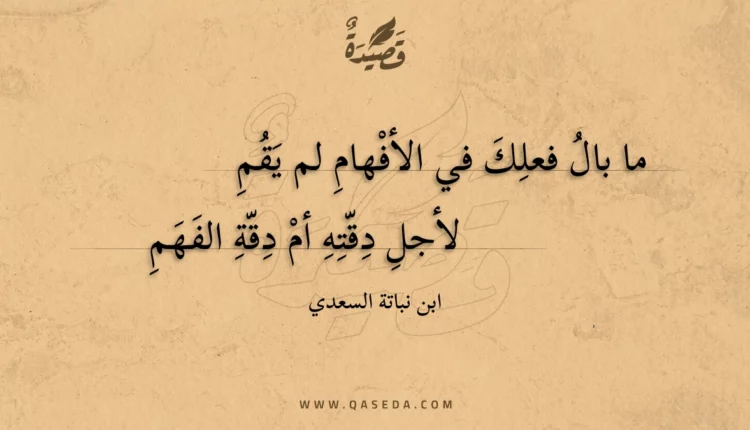 قَصِيْدَةٌ
ما بالُ فعلِكَ في الأفْهامِ لم يَقُمِ
لأجلِ دِقّتِهِ أمْ دِقّةِ الفَهَمِ
ابن نباتة السعدي
WWW.QASEDA.COM